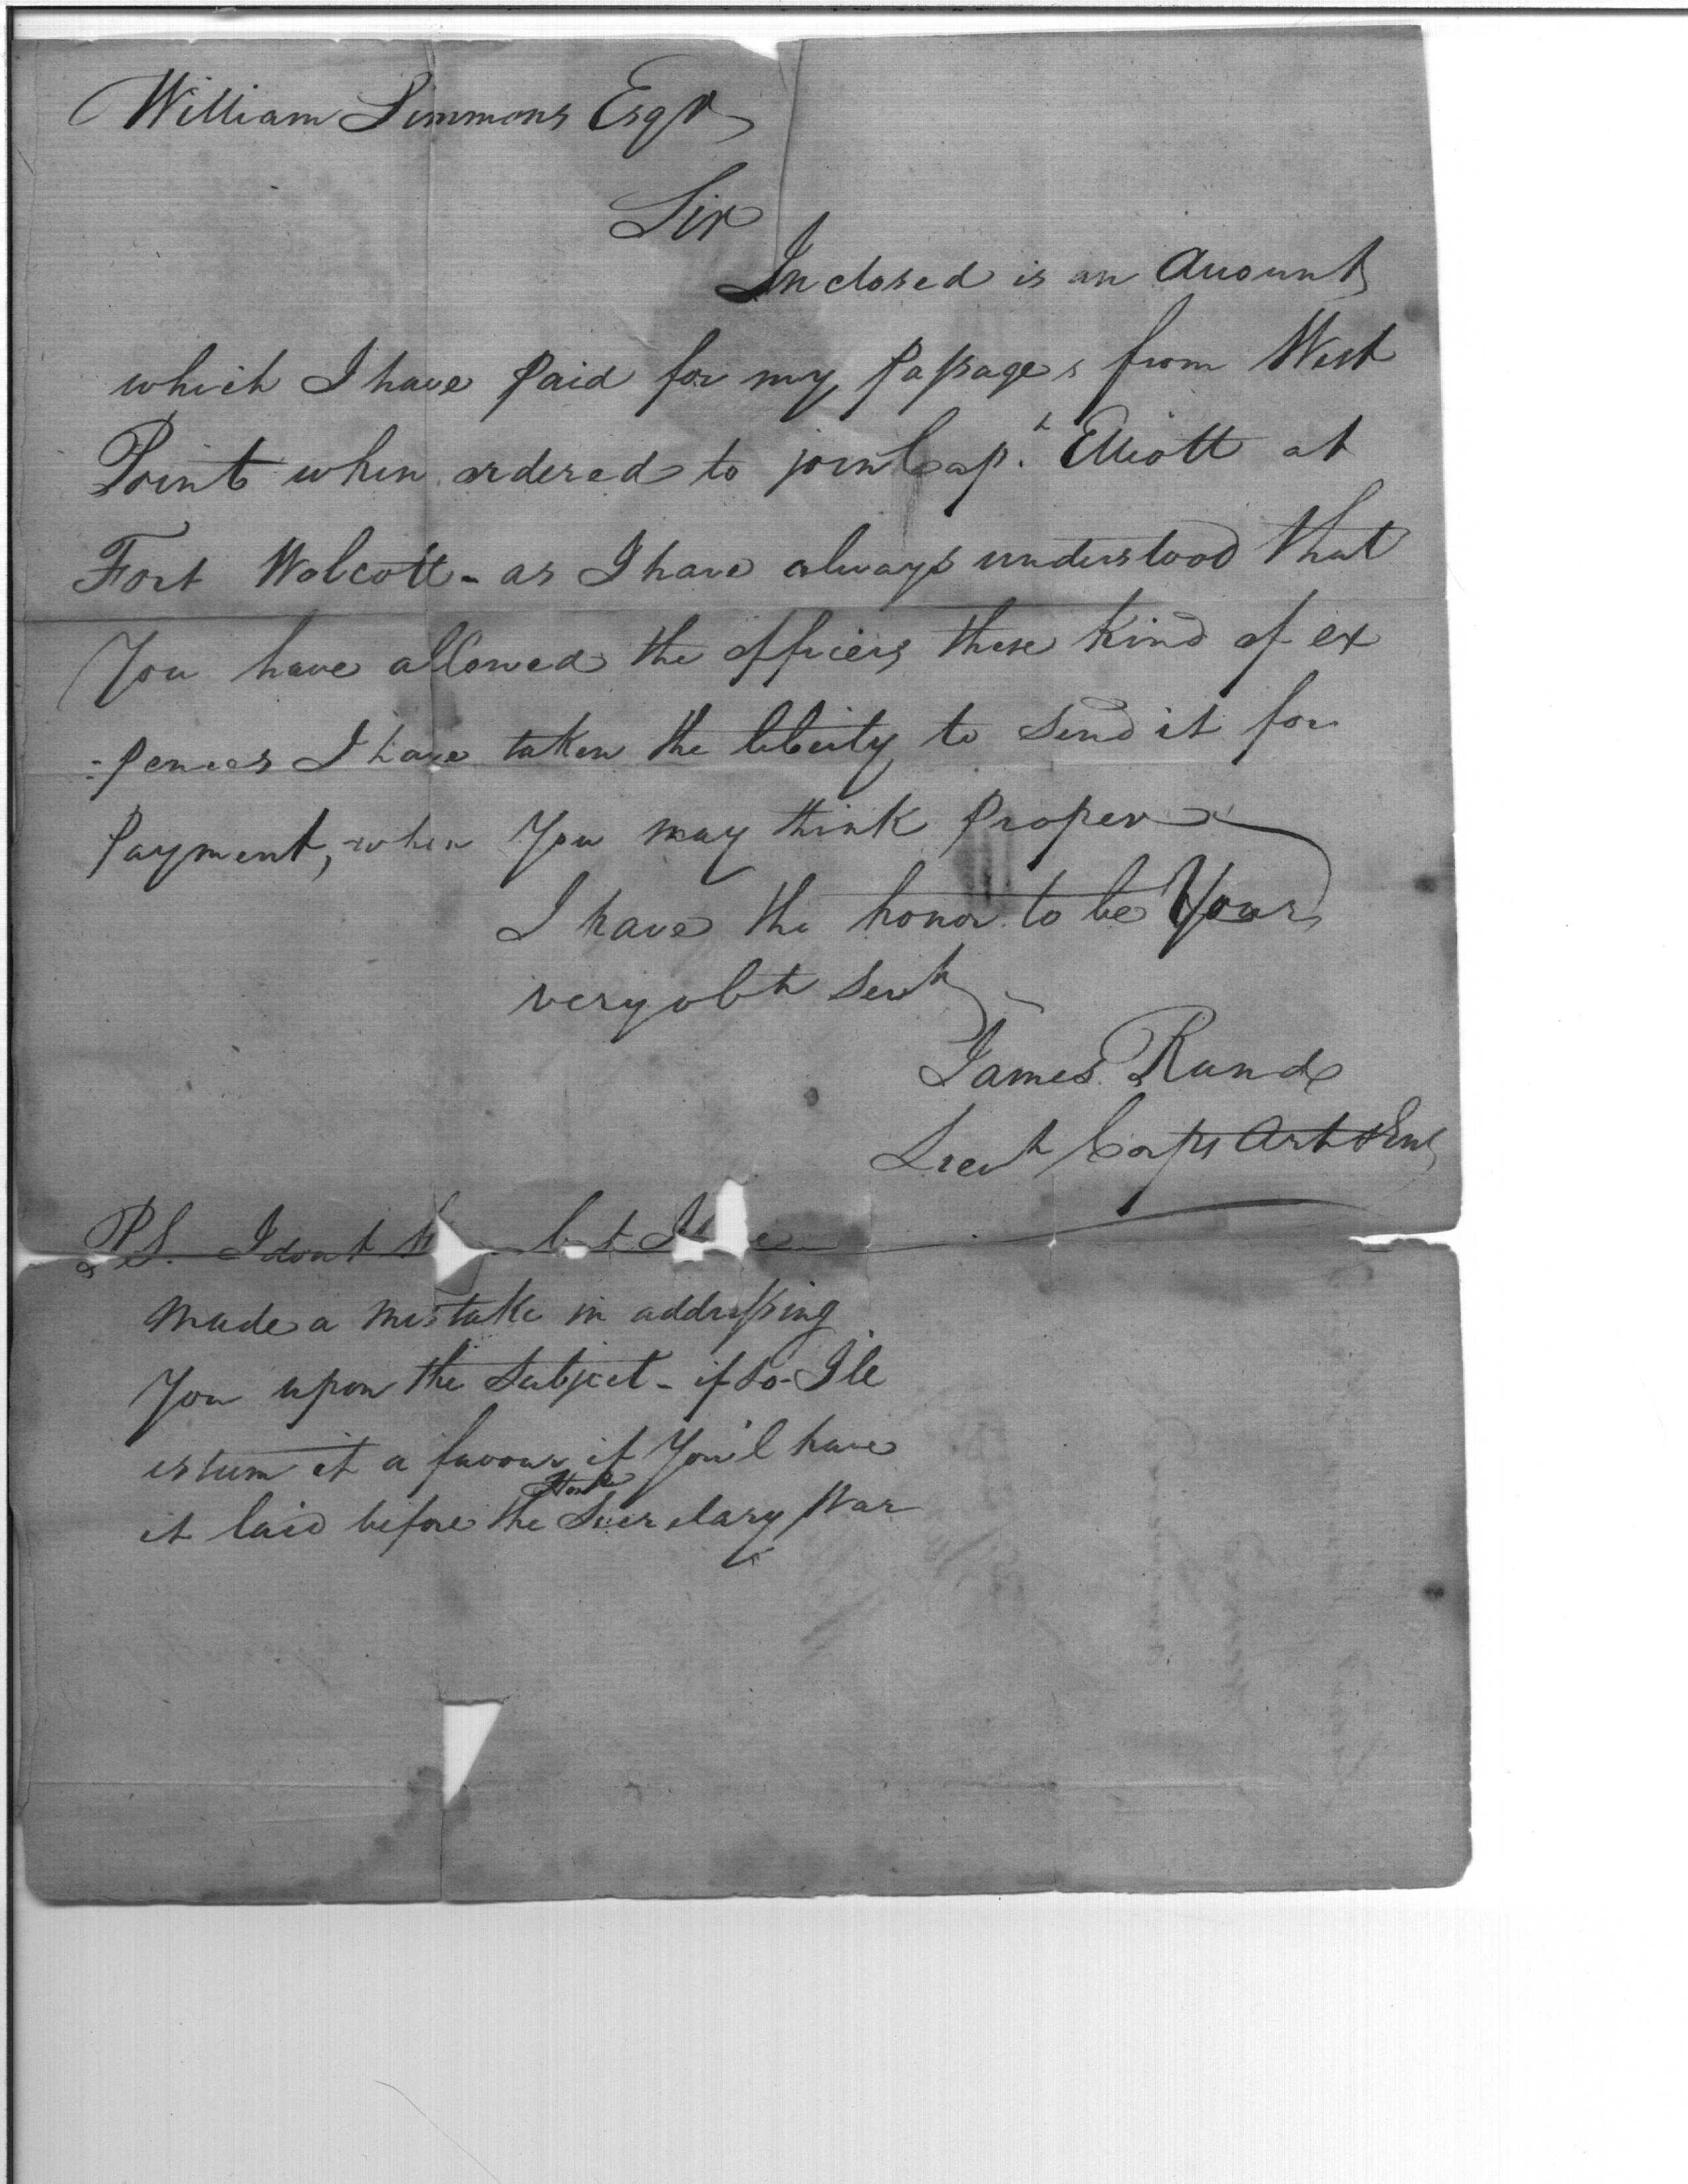 William Simmons Esqr
Sir
Inclosed is an Account
which I have paid for my passages from West
Point when ordered to join Capt. Elliott at
Fort Wolcott - as I have always understood that
You have allowed the officers these kind of ex
=pences I have taken the liberty to send it for
Payment, when You may think proper
I have the honor to be Your
very obt Servt
James Rand
Lieut Corps Art & Eng
PS. I dont but
made a mistake in addressing
You upon the subject - if so - I'le
esteem it a favour if You'l have
it laid before the Honble Secretary War